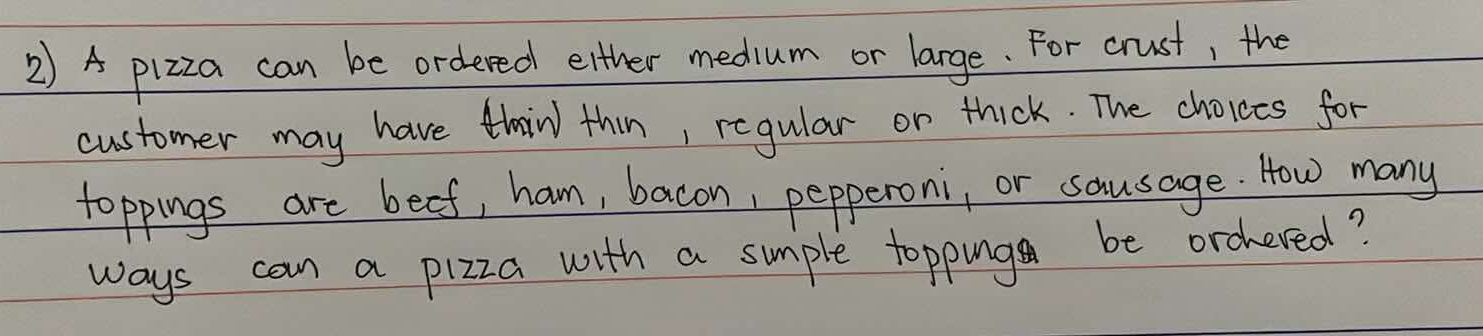 2) A pizza can be ordered either medium or large. For crust, the
customer may have thin, regular or thick. The choices for
toppings are beef, ham, bacon, pepperoni, or sausage. How many
ways can a pizza with a simple topping be orchered?